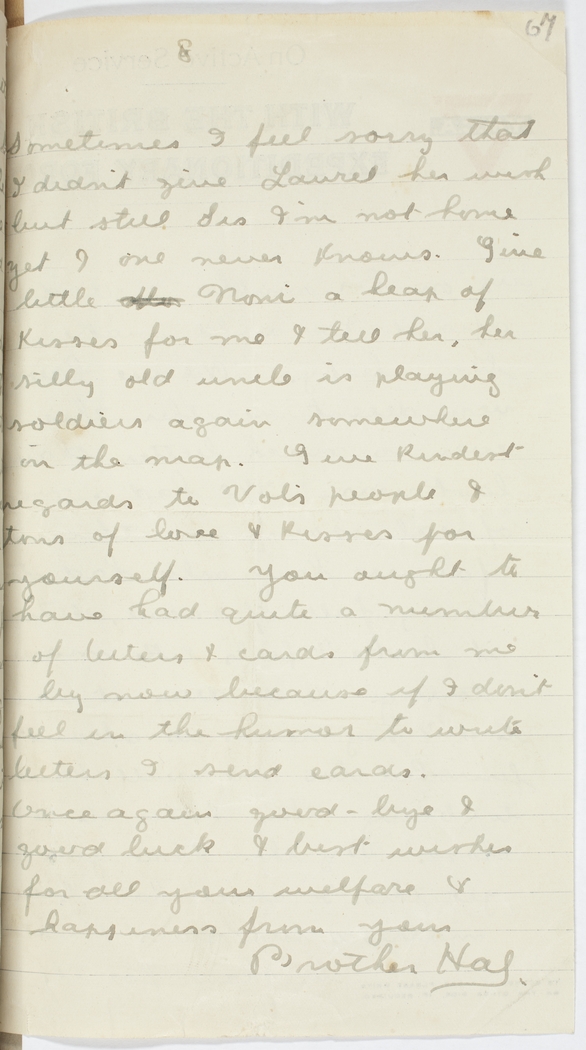 67
8
Sometimes I feel sorry that
I didn't give Laurel her wish
but still Sis I'm not home
yet & one never knows. Give
little Noni a heap of
kisses for me & tell her, her
silly old uncle is playing
soldiers again somewhere
on the map. Give kindest
regards to Vol's people &
tons of love & kisses for
yourself. You ought to
have had quite a number
of letters & cards from me
by now because if I don't
feel in the humor to write
letters I send cards.
Once again good-bye &
good luck & best wishes
for all your welfare &
happiness from your
Brother Hal.